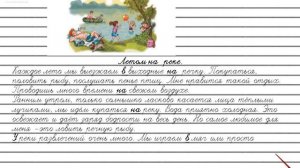 Летом на реке.
Каждое лето мы выезжаем в выходные на речку. Покупаться,
половить рыбу, послушать пенье птиц. Мне нравится такой отдых.
Проводишь много времени на свежем воздухе.
Ранним утром, только солнышко ласково касается лица тёплыми
лучиками, мы идём купаться на реку. Вода приятно холодная. Это
освежает и даёт заряд бодрости на весь день. Но самое любимое для
меня - это ловить речную рыбу.
У речки развлечений очень много. Мы играем в мяч или просто